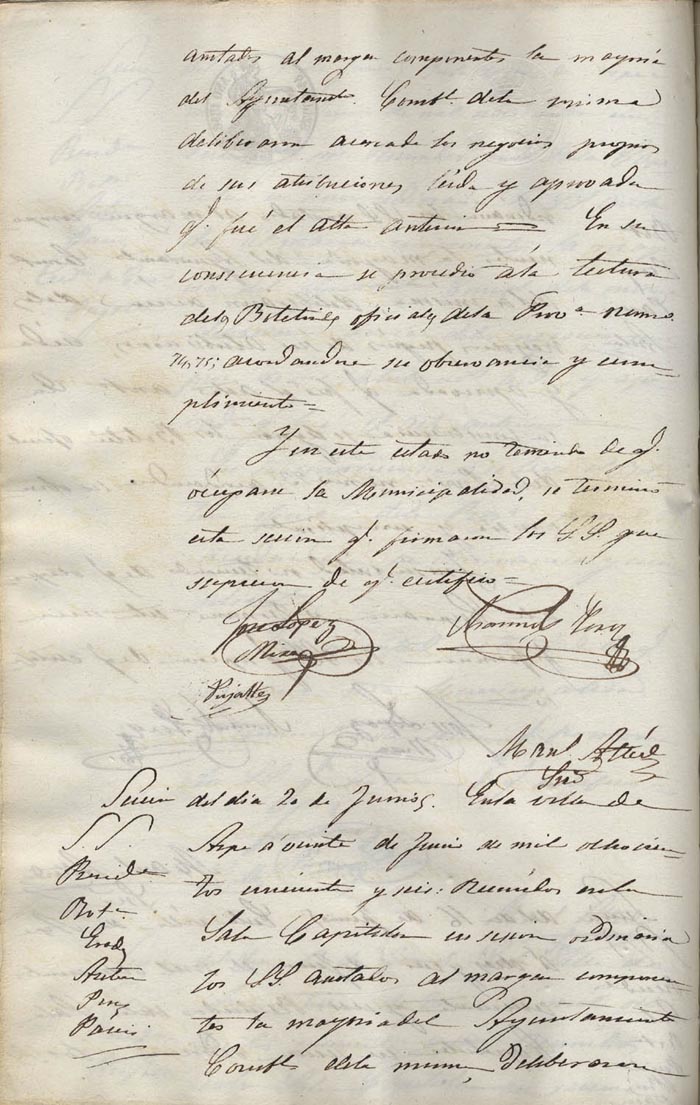 anotados al margen componentes la mayoria
del Ayuntamto. Constl. dela misma
deliberaron acercade los negocios propios
de sus atribuciones leida y aprovada
q. fué el acta anterior = En su
consecuencia se procedió ála lectura
delos Boletines oficiales dela Prova. numo.
74, 75; acordandose su observancia y cum-
plimiento =
Y en este estado no teniendo de q.
ócuparse la Municipalidad, se terminó
esta sesion q. firmaron los S.S. que
supieron de q. certifico =
Jose Lopez
Mira
Manuel
Pujalte
Manl
Srio
Sesion del dia 20 de Junio, Enla villa de
S.S. Aspe á veinte de Junio de mil ochocien-
Preside tos cincuenta y seis: Reunidos enla
Sala Capitular en sesion ordinaria
los SS. anotados al margen componen-
tes la mayoria del Ayuntamiento
Constl. dela misma, deliberaron